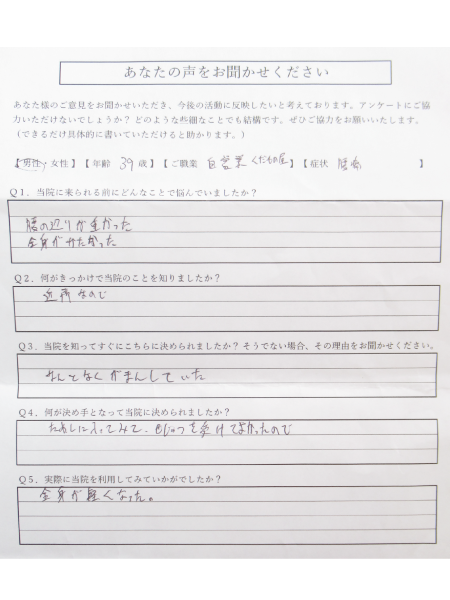 あなたの声をお聞かせください
あなた様のご意見をお聞かせいただき、今後の活動に反映したいと考えております。アンケートにご協
力いただけないでしょうか?どのような些細なことでも結構です。ぜひご協力をお願いいたします。
(できるだけ具体的に書いていただけると助かります。)
【男性・女性】【年齢 39歳】【ご職業 自営業 くだもの屋 】【症状 腰痛 】
Q1. 当院に来られる前にどんなことで悩んでいましたか?
腰の辺りが重かった
全身がかたかった
Q2. 何がきっかけで当院のことを知りましたか?
近所なので
Q3. 当院を知ってすぐにこちらに決められましたか?そうでない場合、その理由をお聞かせください。
なんとなくがまんしていた
Q4. 何が決め手となって当院に決められましたか?
ためしに入ってみて、せじゅつを受けてよかったので
Q5. 実際に当院を利用してみていかがでしたか?
全身が軽くなった。